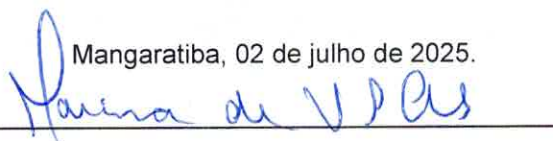 Mangaratiba, 02 de julho de 2025.
Marina de V P